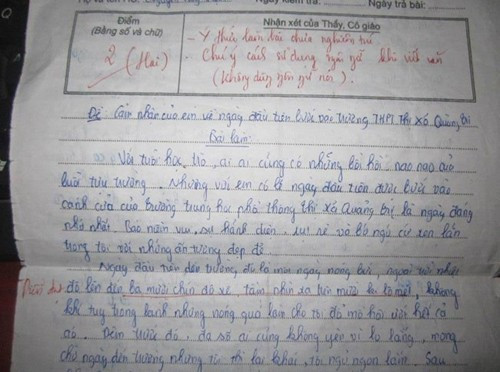 Ngày kiểm tra: Ngày trả bài:
Điểm
(Bằng số và chữ)
Nhận xét của Thầy, Cô giáo
2 (Hai)
- Ý thức làm bài chưa nghiêm túc
- Chú ý cách sử dụng ngôn ngữ khi viết văn
(không dùng ngôn ngữ nói).
Đề: Cảm nhận của em về ngày đầu tiên bước vào trường THPT Thị Xã Quảng Trị
Bài làm:
Với tuổi học trò, ai ai cũng có những bồi hồi nao nao của
buổi tựu trường. Nhưng với em có lẽ ngày đầu tiên được bước vào
cánh cửa của trường trung học phổ thông thị xã Quảng Trị là ngày đáng
nhớ nhất. Bao niềm vui, sự hãnh diện, vui vẻ và bỡ ngỡ cứ xen lẫn
trong tôi với những ấn tượng đẹp đẽ.
Ngày đầu tiên đến trường, đó là một ngày nóng bức, ngoài trời nhiệt
độ lên đến ba mươi chín độ xê, tầm nhìn xa trên mười ki lô mét, không
khí tuy trong lành nhưng nóng quá làm cho tôi đổ mồ hôi ướt hết cả
áo. Đêm trước đó, đa số ai cũng không yên vì lo lắng, mong
chờ ngày đến trường nhưng tôi thì lại khác, tôi ngủ ngon lắm. Sau